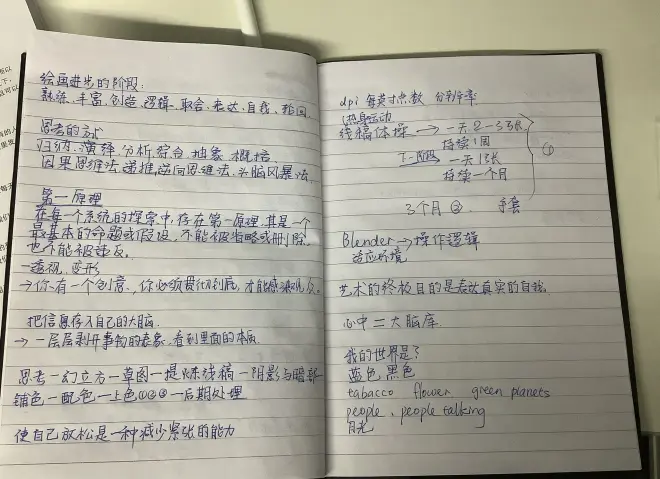 绘画进步的阶段:
熟练、丰富、创造、逻辑、取舍、表达、自我、
思考的方式
归纳、演绎、分析、综合、抽象、概括、
因果思维法、递推逆向思维法、头脑风暴法、
第一原理
在每个系统的探索中,存在第一原理,其是一个
最基本的命题或假设,不能被省略或删除,
也不能被违反。
透视、变形
→你有一个创意,你必须贯彻到底,才能感染观众。
把信息存入自己的大脑.
→一层层剥开事物的表象,看到里面的本质
思考-幻立方-草图-提炼线稿-阴影与暗部-
铺色-配色-上色①②③-后期处理
使自己放松是一种减少紧张的能力
dpi 每英寸点数 分辨率
(热身运动
线稿体操→一天2-3张
持续1周
下一阶段→一天1张
持续一个月
①
3个月② 手套
Blender→操作逻辑
适应环境
艺术的终极目的是表达真实的自我.
心中二大脑库.
我的世界是?
蓝色 黑色
tabacco flower green planets
people、people talking
月光